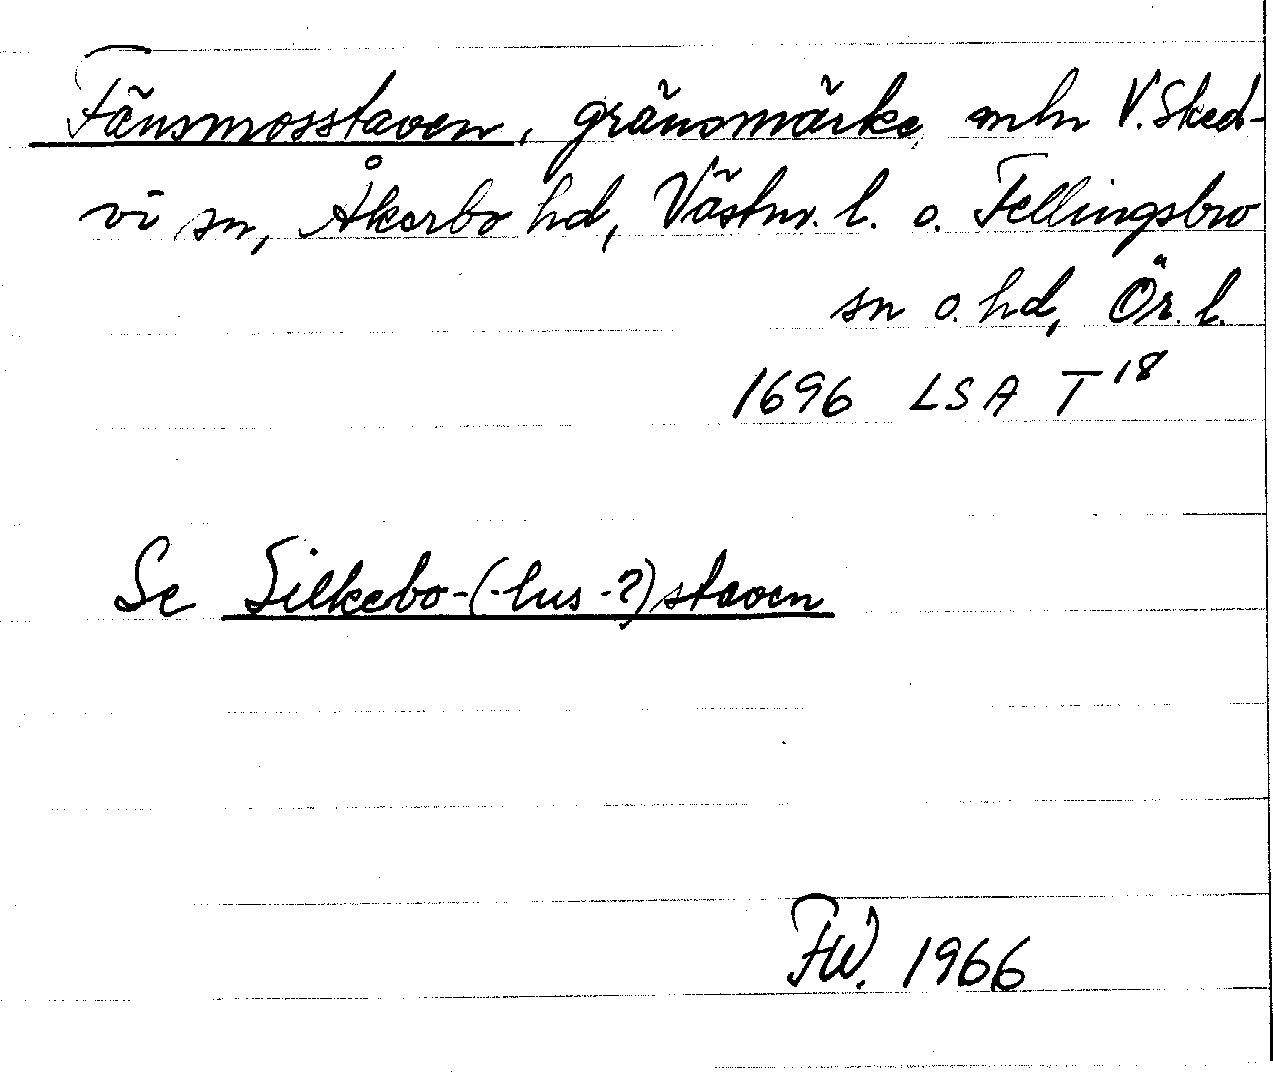 Fänsmosstaven, gränsmärke mln V. Sked-
vi sn, Åkerbo hd, Västm. l. o. Fellingsbro
sn o. hd, Ör. l.
1696 LSA T 18
Se Silkebo-(-lus-?)staven
FW. 1966